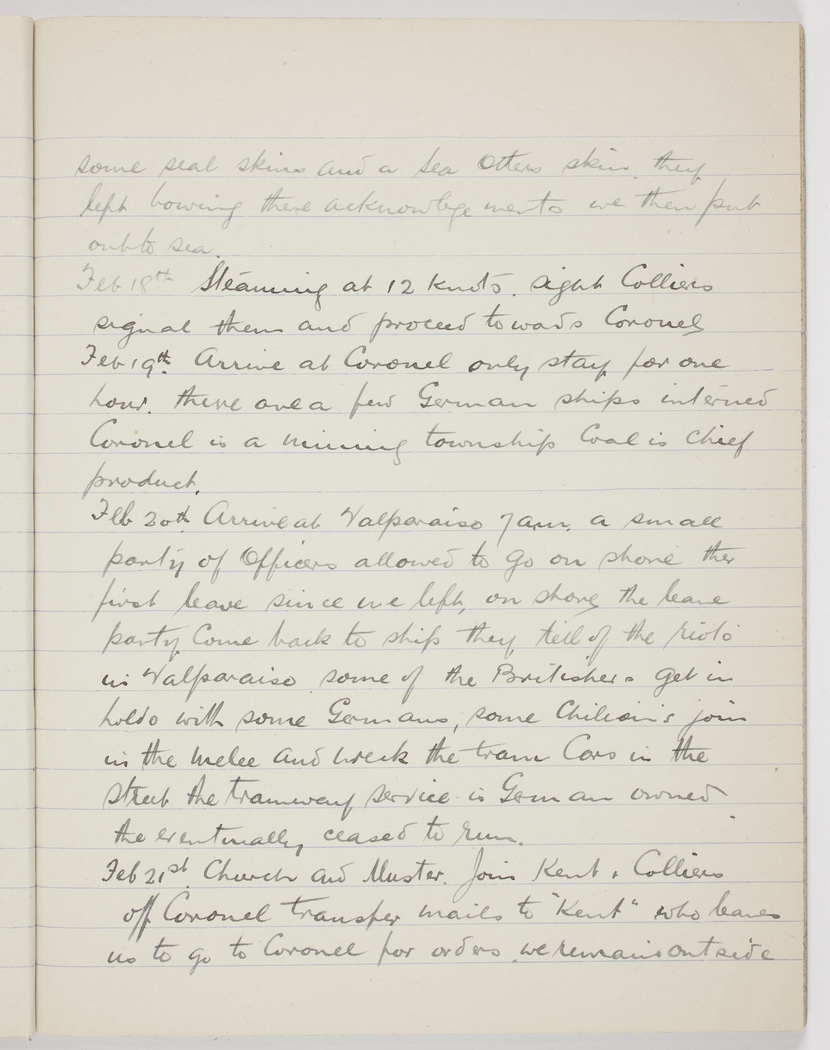 some seal skins and a sea otters skin. they
left bowing there acknowlegements we then put
out to sea.
Feb 18th Steaming at 12 knots. sight Colliers
signal them and proceed towads Coronel
Feb 19th. Arrive at Coronel only stay for one
hour. there are a few German ships interned
Coronel is a mining township Coal is chief
product.
Feb 20th. Arrive at Valparaiso 7 am. a small
party of Officers allowed to go on shore the
first leave since we left, on shore the leave
party Come back to ship they tell of the riots
in Valparaiso some of the Britishers get in
holds with some Germans, some Chilian's join
in the melee and wreck the tram Cars in the
street the tramway service is German owned
the eventually ceased to run.
Feb 21st. Church and Muster. Join Kent & Colliers
off Coronel transfer mails to "Kent" who leaves
us to go to Coronel for orders. we remain outside